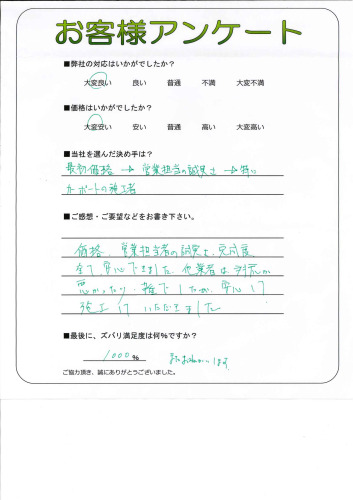 お客様アンケート
■弊社の対応はいかがでしたか？
大変良い 良い 普通 不満 大変不満
■価格はいかがでしたか？
大変安い 安い 普通 高い 大変高い
■当社を選んだ決め手は？
最初価格 → 営業担当の誠実さ → 特に
カーポートの施工者
■ご感想・ご要望などをお書き下さい。
価格、営業担当者の誠実さ、完成度
全て、安心できました。他業者は対応が
悪かったり、 でしたが、安心して
施工していただきました
■最後に、ズバリ満足度は何％ですか？
1000 % またおねがいします
ご協力頂き、誠にありがとうございました。